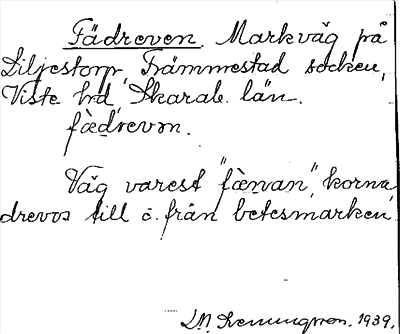 Fädreven. Markväg på
Liljestorp, Främmestad socken,
Viste hd, Skarab. län.
fædrevən.
Väg varest "fænan", korna
drevos till o. från betesmarken.
1939.